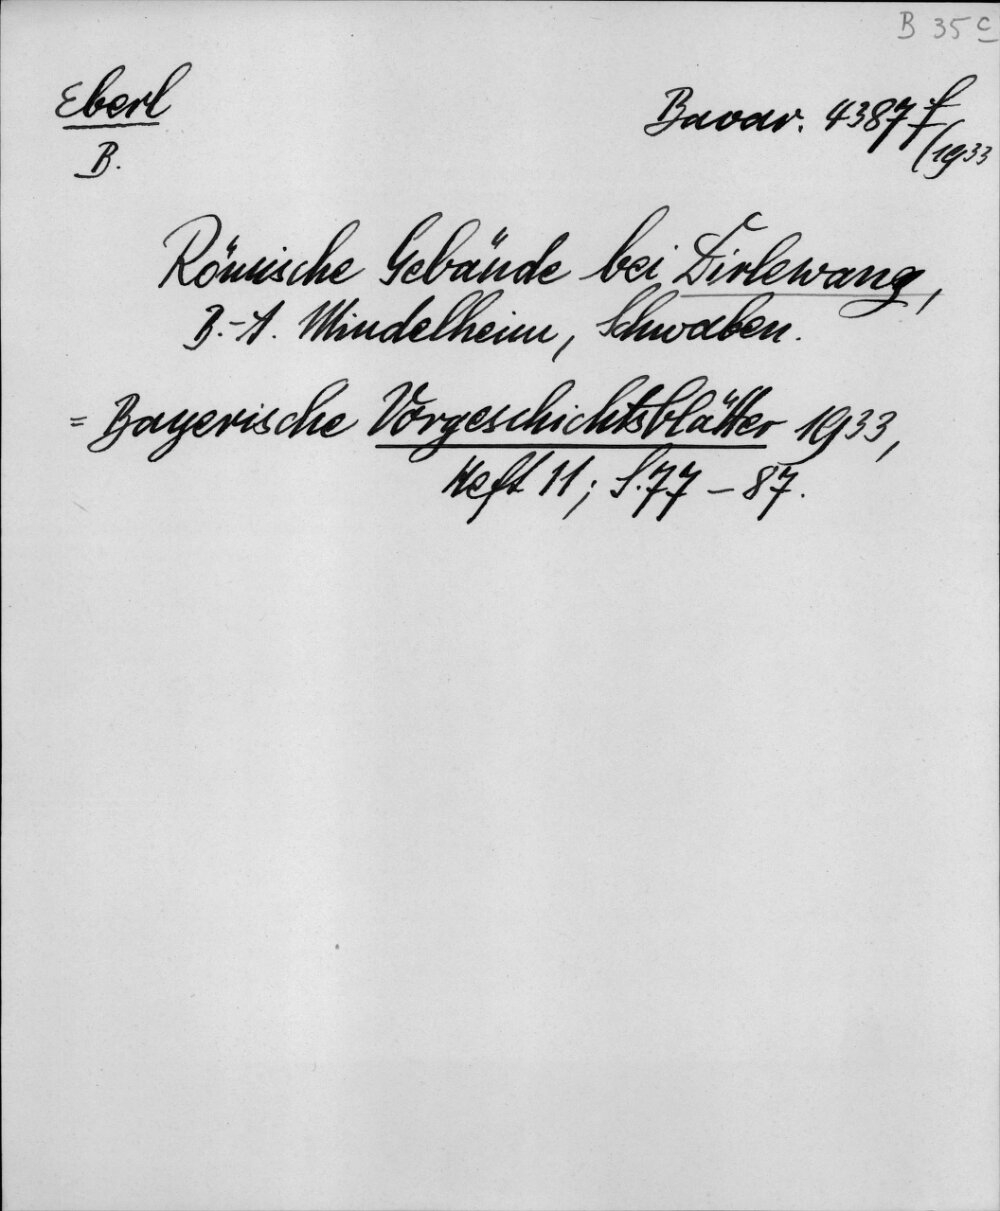 B 35 c
Eberl
Bavar. 4387 f
/1933
B.
Römische Gebäude bei Dirlewang,
B.-A. Mindelheim, Schwaben.
= Bayerische Vorgeschichtsblätter 1933,
Heft 11; S. 77 – 87.